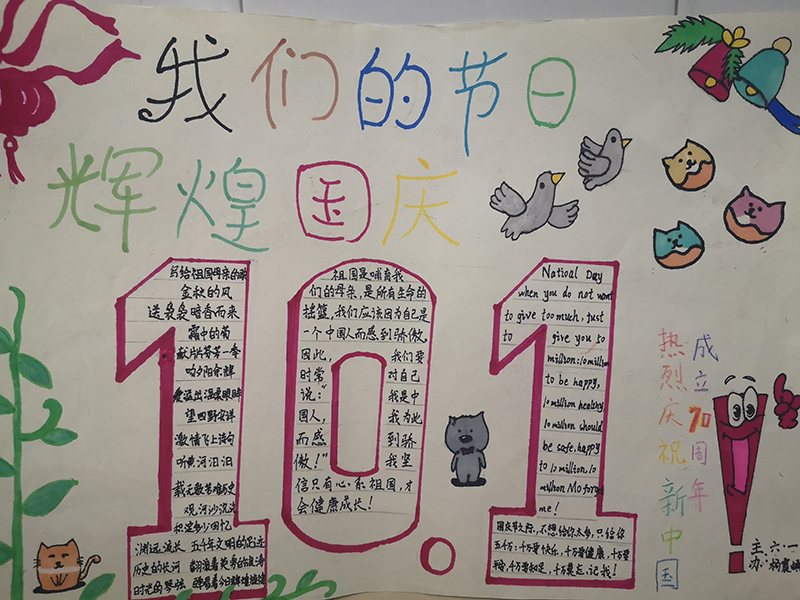 我们的节日
辉煌国庆
写给祖国母亲的歌
金秋的风
送袅袅暗香而来
霜中的菊
献片片芬芳一季
吻夕阳余辉
望四野安详
激情飞上诗句
听黄河汩汩
载无数苦难历史
观河沙沉淀
积淀多少回忆
渊远流长 五千年文明的足迹
历史的长河
时光的琴弦
祖国是哺育我
们的母亲,是所有生命的
摇篮,我们应该因为自己是
一个中国人而感到骄傲。
因此, 我们要
时常 对自己
说:“ 我是中
国人, 我为此
而感 到骄
傲!” 我坚
信只有心系祖国,才
会健康成长!
Natioal Day
when you do not want
to give too much, just
to give you 50
million:10million
to be happy,
10 million healthy,
10 million should
be safe,happy
to 10 million,10
million Mo forget
me!
国庆节又到,不想给你太多,只给你
五千万:千万要快乐,千万要健康,千万要
平安,千万要知足,千万莫忘记我!
10.1
热烈庆祝新中国
成立70周年
主:六·一
办:杨